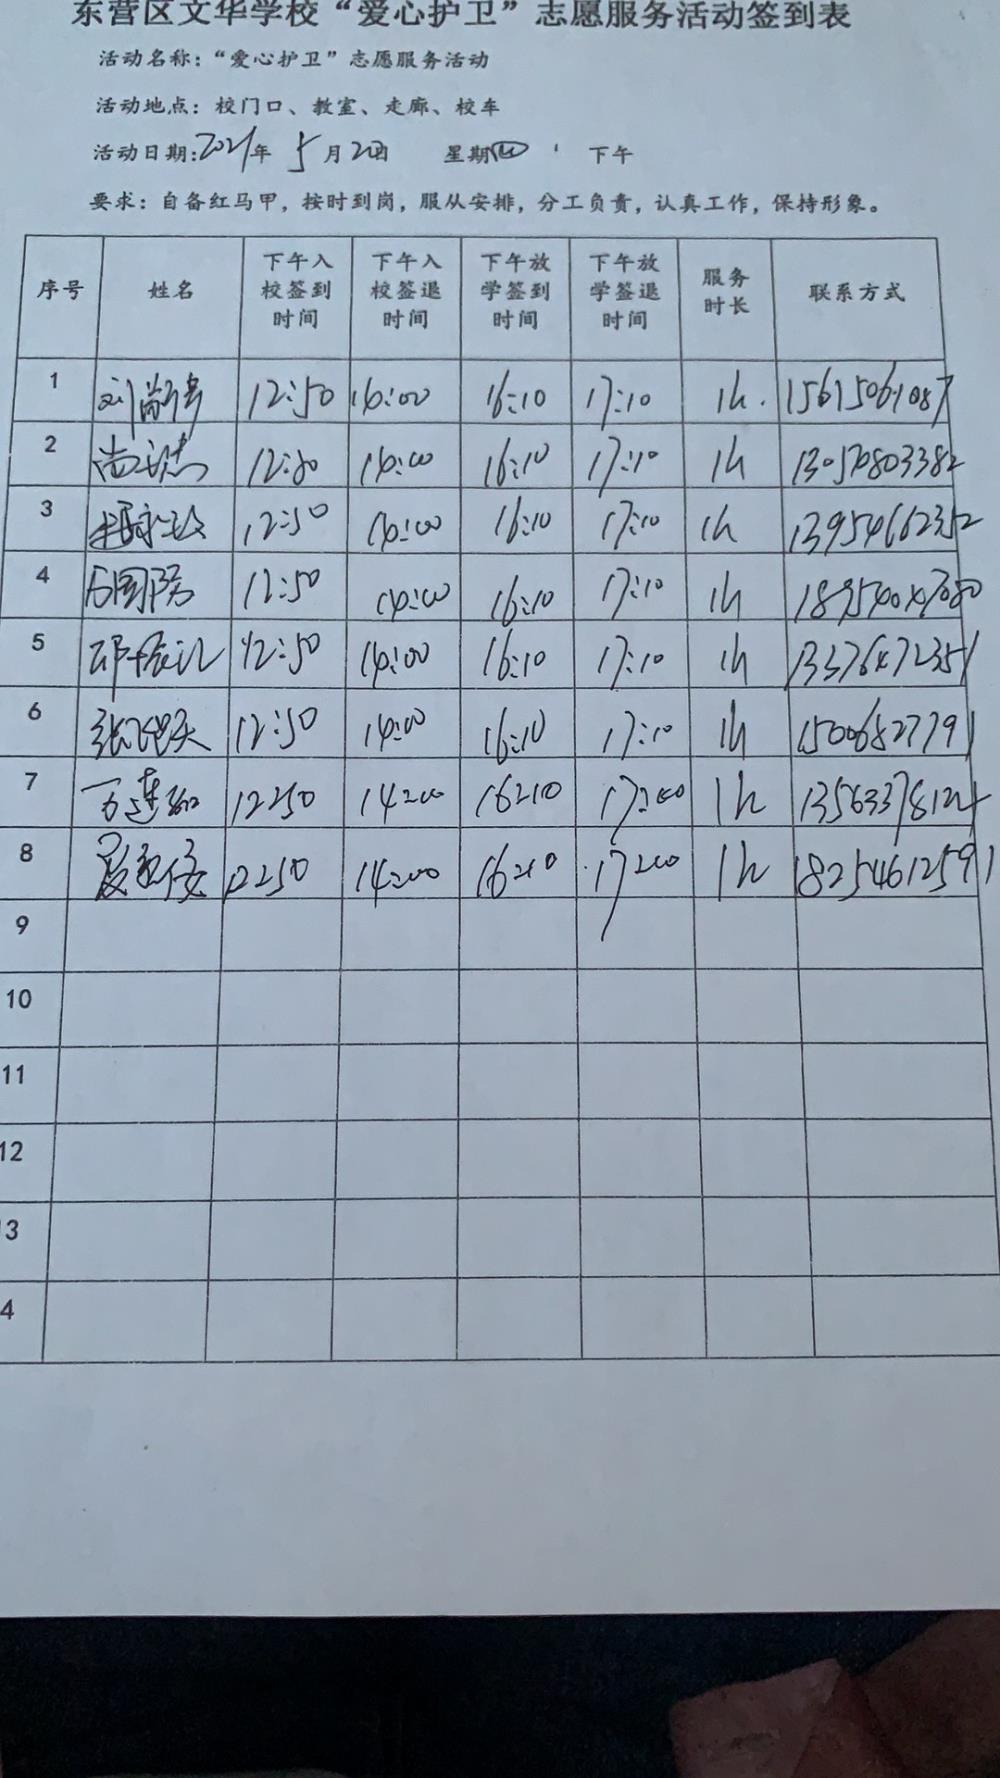 东营区文华学校“爱心护卫”志愿服务活动签到表
活动名称：“爱心护卫”志愿服务活动
活动地点：校门口、教室、走廊、校车
活动日期:2021年 5月20日 星期四 下午
要求：自备红马甲，按时到岗，服从安排，分工负责，认真工作，保持形象。
序号 姓名 下午入校签到时间 下午入校签退时间 下午放学签到时间 下午放学签退时间 服务时长 联系方式
1 12:50 14:00 16:10 17:10 1h. 15615061087
2 12:50 14:00 16:10 17:10 1h
3 12:50 14:00 16:10 17:10 1h 13954662352
4 12:50 14:00 16:10 17:10 1h
5 12:50 14:00 16:10 17:10 1h
6 12:50 14:00 16:10 17:10 1h 15006827791
7 12:50 14:00 16:10 17:00 1h
8 12:50 14:00 16:10 17:00 1h 18254612591
9
10
11
12
3
4